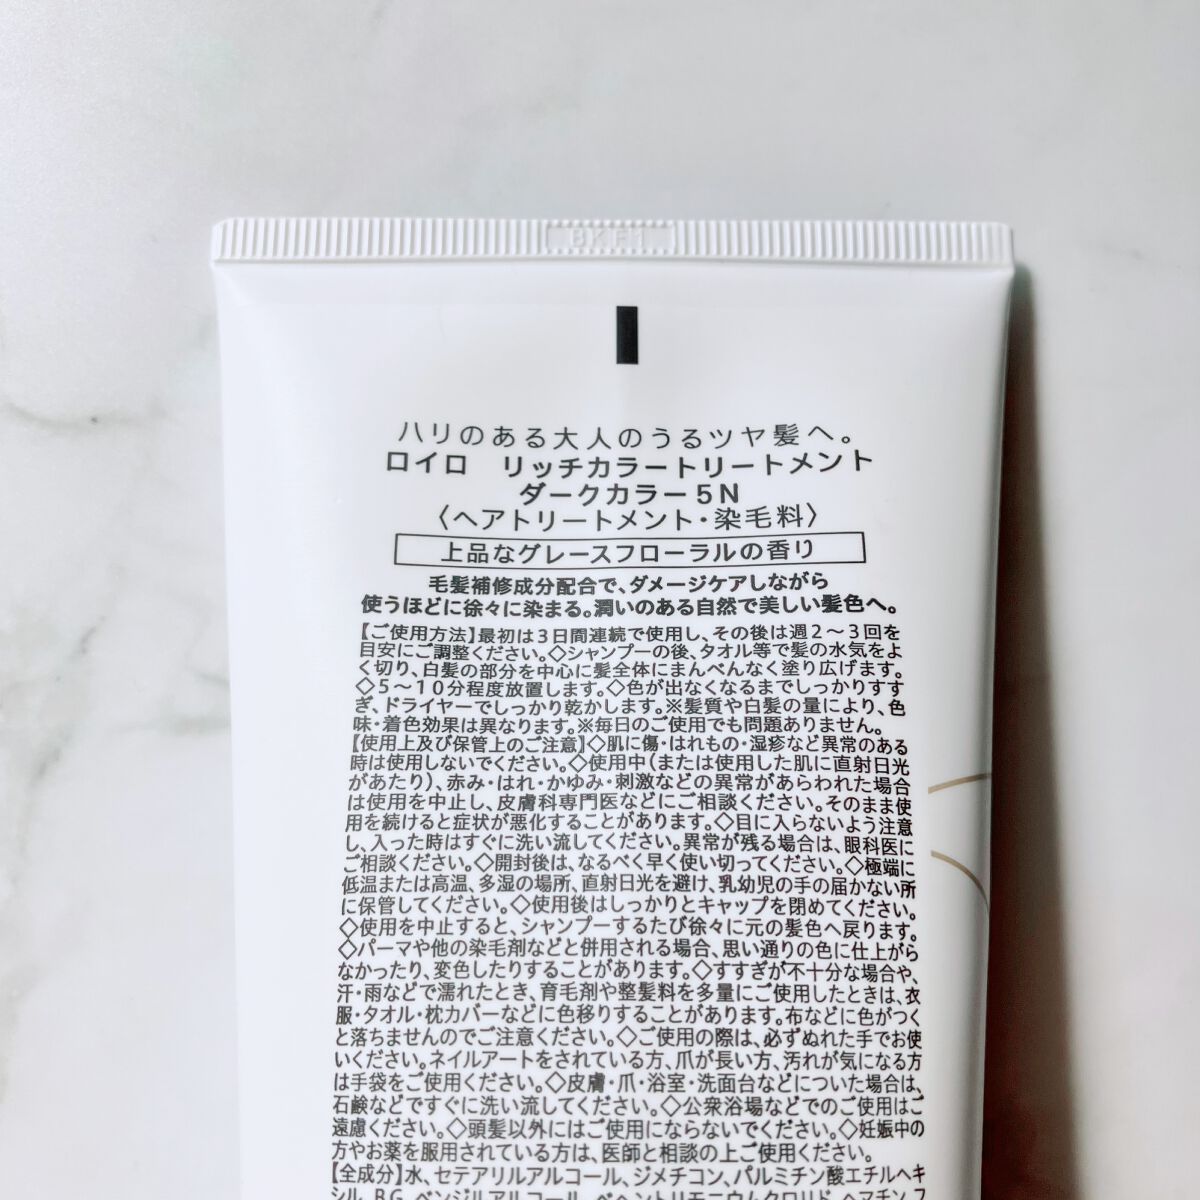 BKF1
ハリのある大人のうるツヤ髪へ。
ロイロ リッチカラートリートメント
ダークカラー5N
〈ヘアトリートメント・染毛料〉
上品なグレースフローラルの香り
毛髪補修成分配合で、ダメージケアしながら
使うほどに徐々に染まる。潤いのある自然で美しい髪色へ。
【ご使用方法】最初は3日間連続で使用し、その後は週2〜3回を
目安にご調整ください。◇シャンプーの後、タオル等で髪の水気をよ
く切り、白髪の部分を中心に髪全体にまんべんなく塗り広げます。
◇5〜10分程度放置します。◇色が出なくなるまでしっかりすす
ぎ、ドライヤーでしっかり乾かします。※髪質や白髪の量により、色
味・着色効果は異なります。※毎日のご使用でも問題ありません。
【使用上及び保管上のご注意】◇肌に傷・はれもの・湿疹など異常のある
時は使用しないでください。◇使用中(または使用した肌に直射日光
があたり)、赤み・はれ・かゆみ・刺激などの異常があらわれた場合
は使用を中止し、皮膚科専門医などにご相談ください。そのまま使
用を続けると症状が悪化することがあります。◇目に入らないよう注意
し、入った時はすぐに洗い流してください。異常が残る場合は、眼科医に
ご相談ください。◇開封後は、なるべく早く使い切ってください。◇極端に
低温または高温、多湿の場所、直射日光を避け、乳幼児の手の届かない所
に保管してください。◇使用後はしっかりとキャップを閉めてください。
◇使用を中止すると、シャンプーするたび徐々に元の髪色へ戻ります。
◇パーマや他の染毛剤などと併用される場合、思い通りの色に仕上がら
なかったり、変色したりすることがあります。◇すすぎが不十分な場合や、
汗・雨などで濡れたとき、育毛剤や整髪料を多量にご使用したときは、衣
服・タオル・枕カバーなどに色移りすることがあります。布などに色がつく
と落ちませんのでご注意ください。◇ご使用の際は、必ずぬれた手でお使
いください。ネイルアートをされている方、爪が長い方、汚れが気になる方
は手袋をご使用ください。◇皮膚・爪・浴室・洗面台などについた場合は、
石鹸などですぐに洗い流してください。◇公衆浴場などでのご使用はご
遠慮ください。◇頭髪以外にはご使用にならないでください。◇妊娠中の
方やお薬を服用されている方は、医師と相談の上ご使用ください。
【全成分】水、セテアリルアルコール、ジメチコン、パルミチン酸エチルヘキ
シル、BG、ベンジルアルコール、ベヘントリモニウムクロリド、ヘマチン、フ